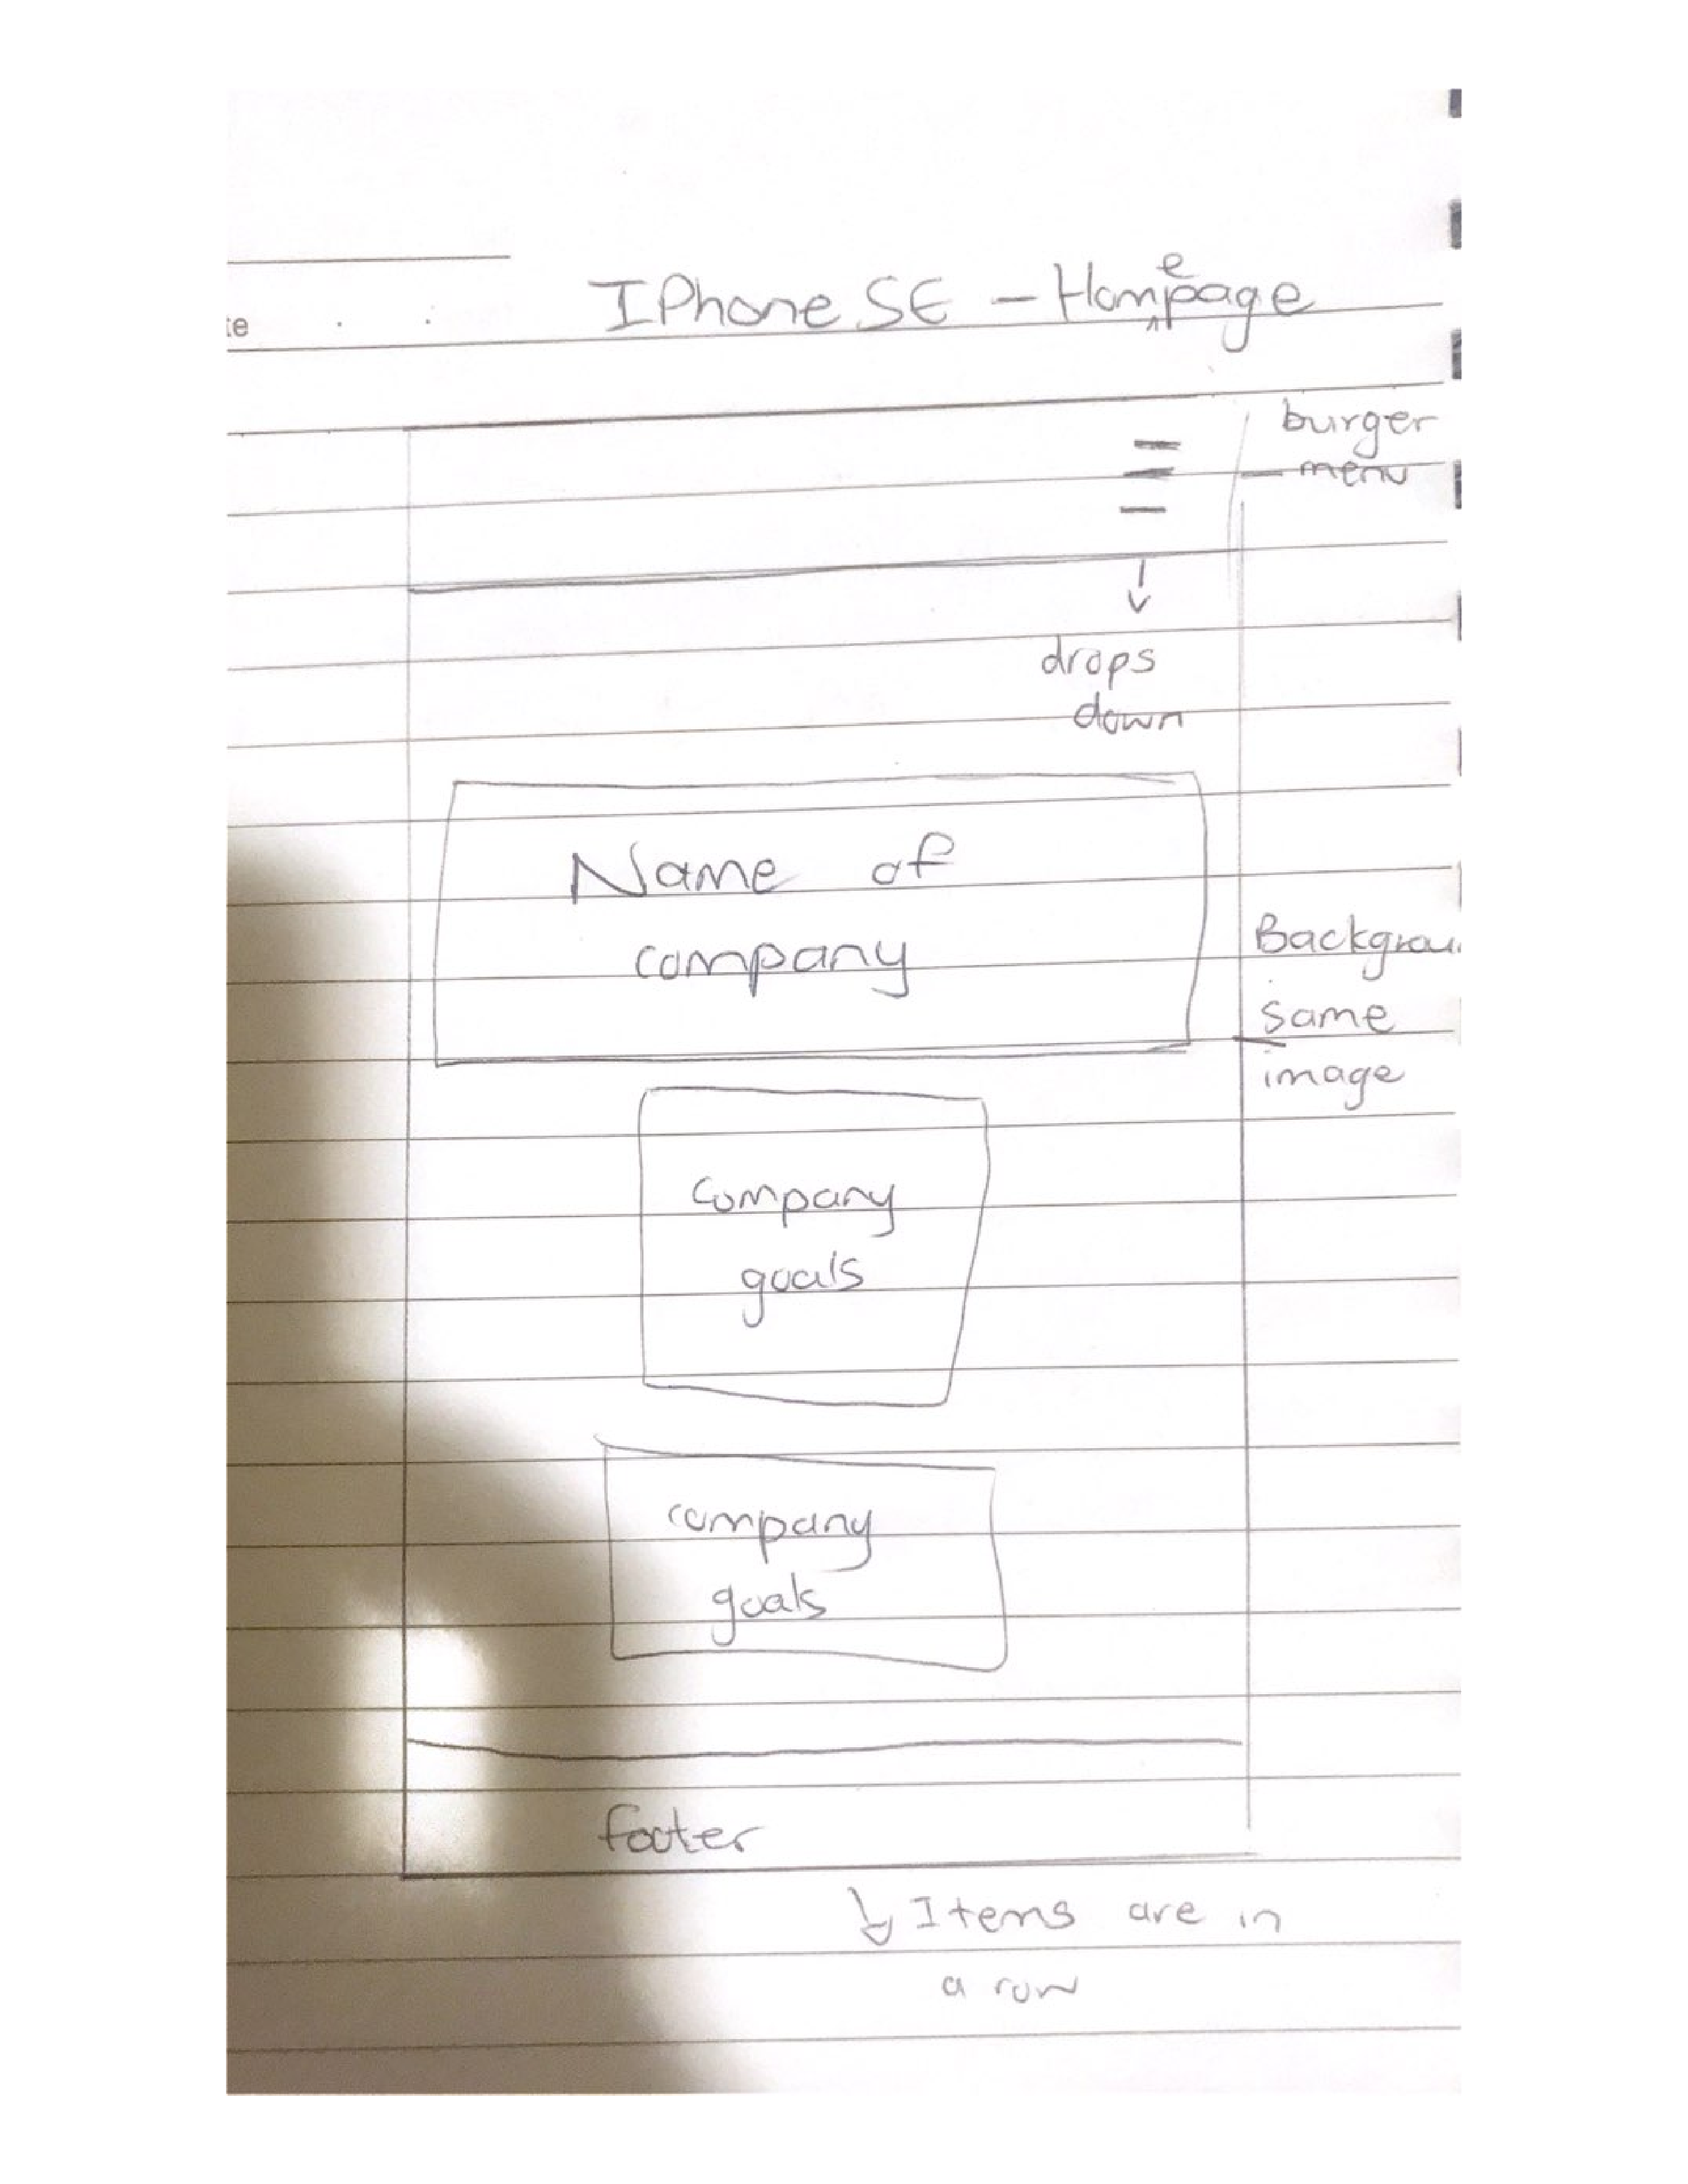 te . :
IPhone SE - Homepage
burger
menu
drops
down
Name of
company
Backgrou
same
image
company
goals
company
goals
footer
Items are in
a row